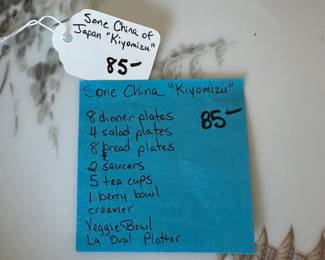 Sone China of
Japan "Kiyomizu"
85-
Sone China "Kiyomizu"
8 dinner plates
85-
4 salad plates
8 bread plates
2 saucers
5 tea cups
1 berry bowl
creamer
Veggie Bowl
La Oval Platter